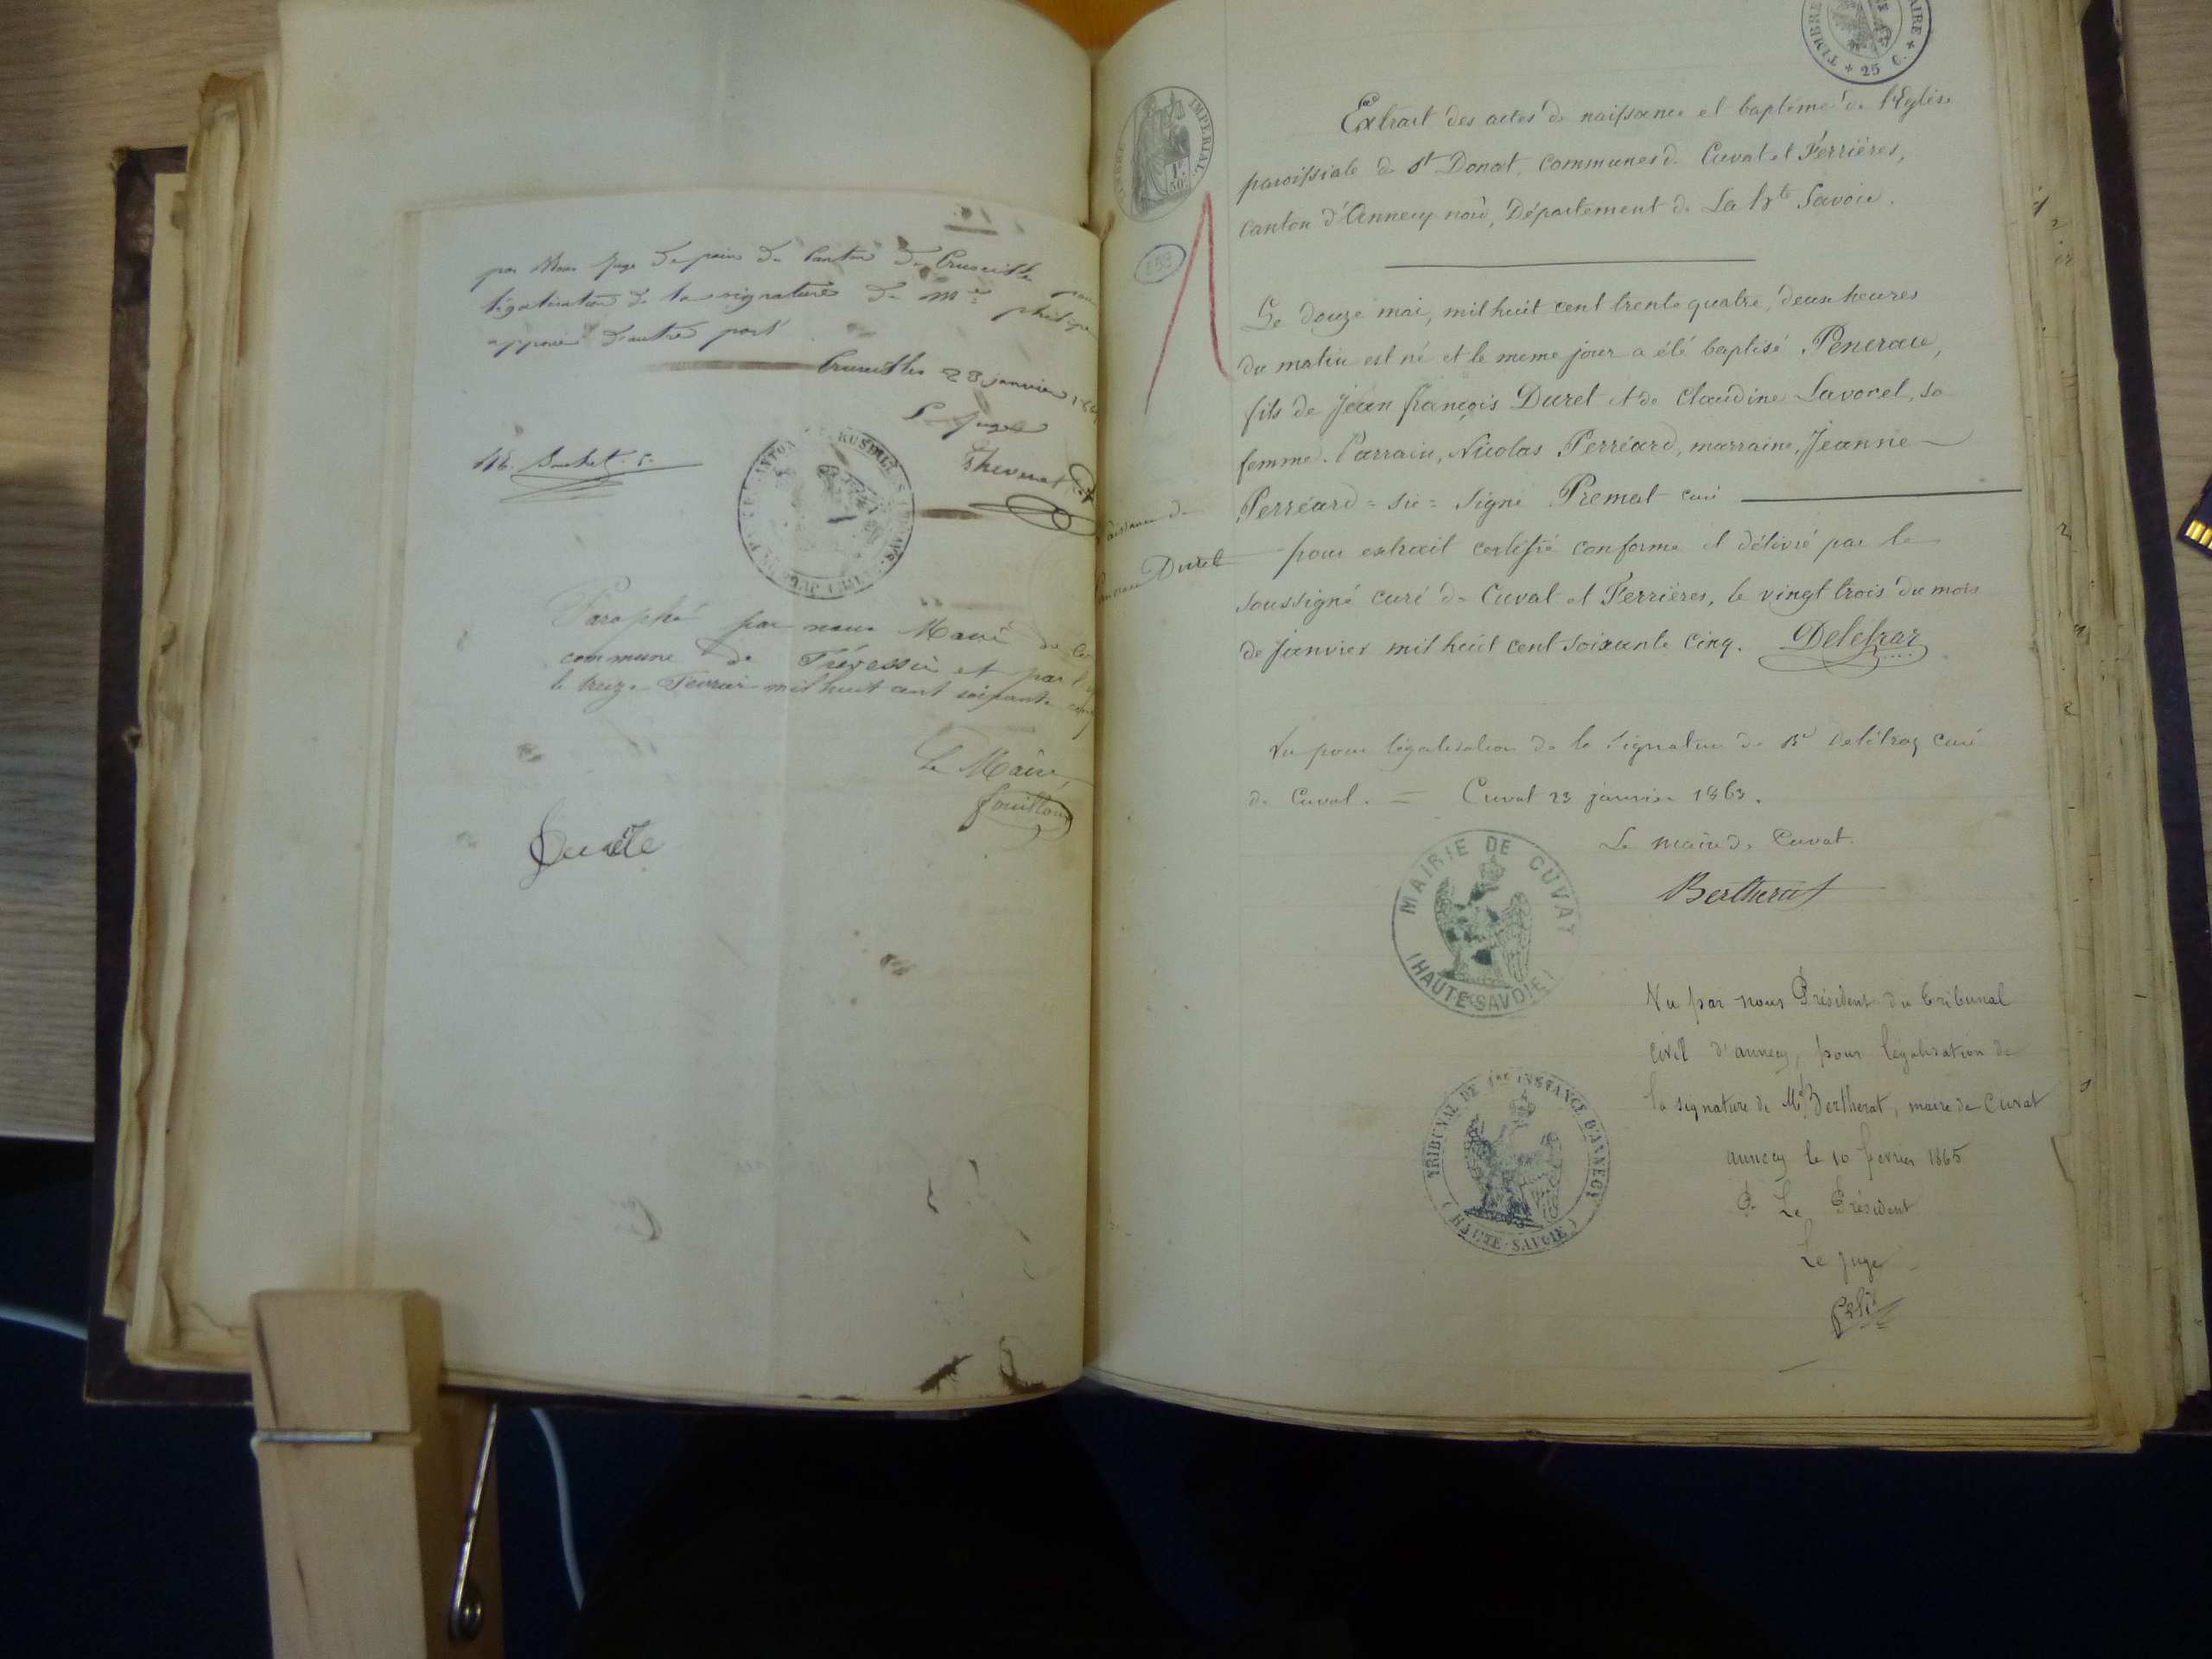 par Nous Juge de paix du Canton de Cruseilles pour
légalisation de la signature de Mr philippe
apposée d'autre part
Cruseilles 23 janvier
Le Juge
Thevenet
Paraphé par nous Maire de la
commune de et par
le treize Fevrier mil huit cent soixante cinq
Le Maire,
fouilloux
TIMBRE IMPERIAL
1F 50C
25 C.
Extrait des actes de naissance et baptême de l'Eglise
paroissiale de St Donat, communes de Cuvat et Ferrières,
canton d'Annecy nord, Département de La Hte Savoie.
Le douze mai, mil huit cent trente quatre, deux heures
du matin est né et le meme jour a été baptisé
fils de Jean françois Duret et de Claudine Lavorel, sa
femme. Parrain, Nicolas Perréard, marraine, Jeanne
Perréard = sic = Signé Premat curé
naissance de
Duret
pour extrait certifié conforme et délivré par le
soussigné curé de Cuvat et Ferrières, le vingt trois du mois
de janvier mil huit cent soixante cinq. Delétraz
Vu pour légalisation de la signature de Rd Delétraz curé
de Cuvat. = Cuvat 23 janvier 1865.
Le maire de Cuvat.
Bertherat
MAIRIE DE CUVAT
(HAUTE-SAVOIE)
Vu par nous Président du tribunal
civil d'annecy, pour légalisation de
la signature de Mr Bertherat, maire de Cuvat
annecy le 10 fevrier 1865
P. Le Président
Le juge
TRIBUNAL DE 1RE INSTANCE D'ANNECY
(HAUTE-SAVOIE)